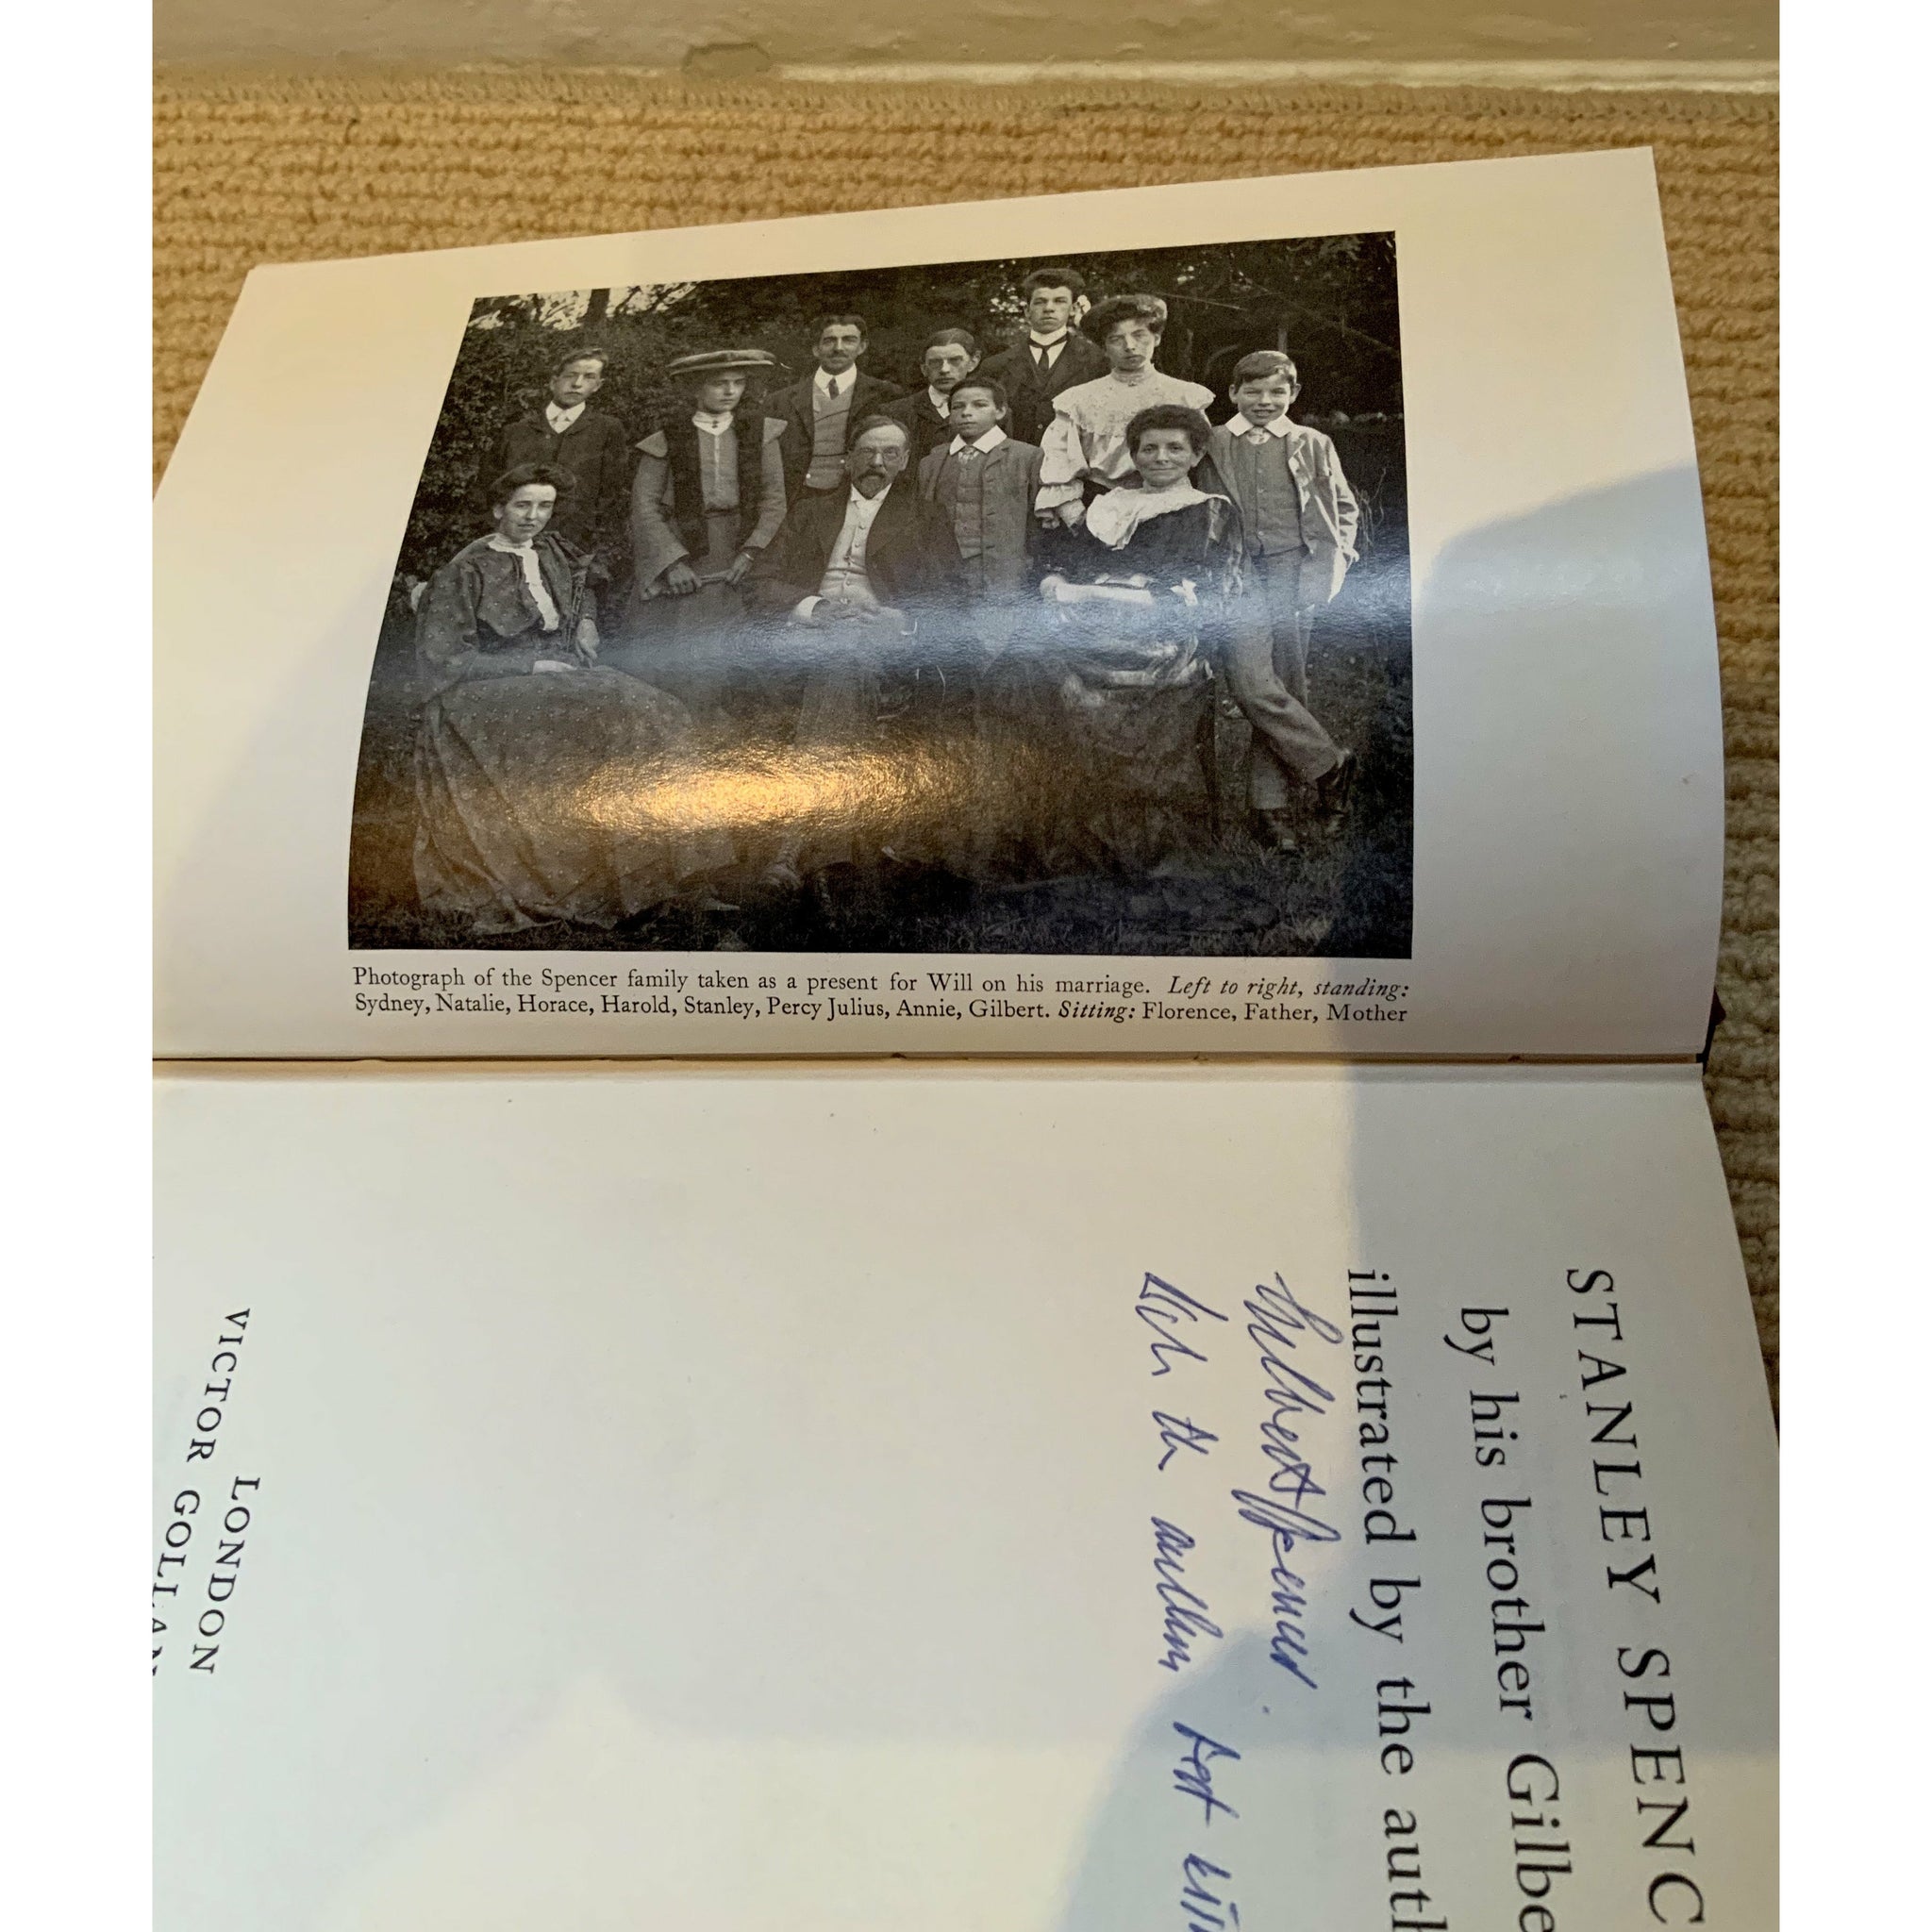 Photograph of the Spencer family taken as a present for Will on his marriage. Left to right, standing:
Sydney, Natalie, Horace, Harold, Stanley, Percy Julius, Annie, Gilbert. Sitting: Florence, Father, Mother
STANLEY SPENC
by his brother Gilbe
illustrated by the auth
Gilbert Spencer.
With the authors best
LONDON
VICTOR GOLLAN